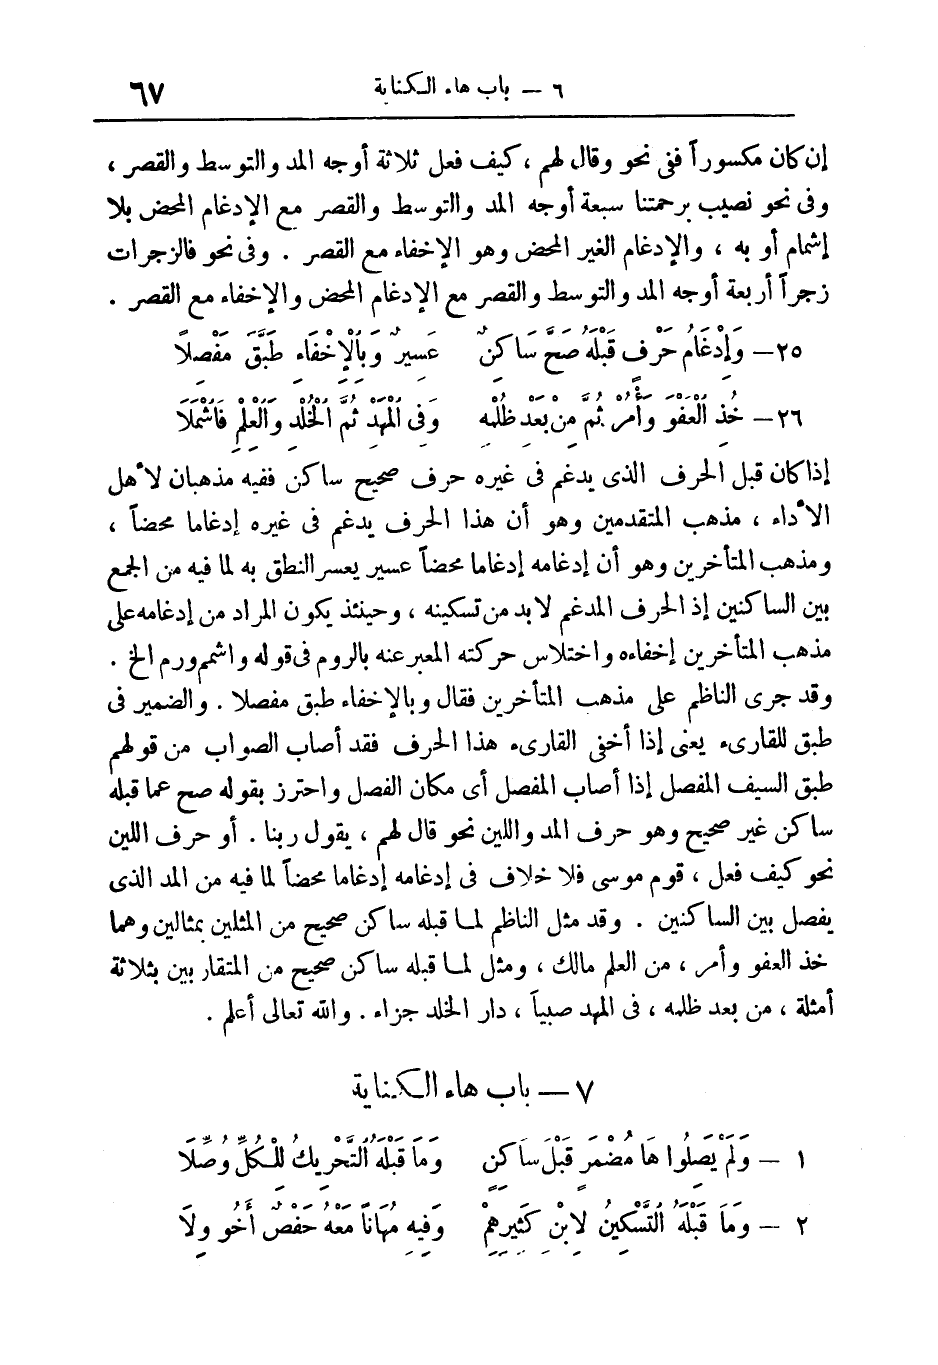 ٦ — باب هاء الكناية ٦٧
إن كان مكسوراً ففى نحو وقال لهم ، كيف فعل ثلاثة أوجه المد والتوسط والقصر ،
وفى نحو نصيب برحمتنا سبعة أوجه المد والتوسط والقصر مع الإدغام المحض بلا
إشمام أو به ، والإدغام الغير المحض وهو الإخفاء مع القصر . وفى نحو فالزجرات
زجراً أربعة أوجه المد والتوسط والقصر مع الإدغام المحض والإخفاء مع القصر .
٢٥ — وَإِدْغَامُ حَرْفٍ قَبْلَهُ صَحَّ سَاكِنٌ عَسِيرٌ وَبِالْإِخْفَاءِ طَبَّقَ مَفْصِلَا
٢٦ — خُذِ الْعَفْوَ وَأْمُرْ ثُمَّ مِنْ بَعْدِ ظُلْمِهِ وَفِى الْمَهْدِ ثُمَّ الْخُلْدِ وَالْعِلْمِ فَاشْمُلَا
إذا كان قبل الحرف الذى يدغم فى غيره حرف صحيح ساكن ففيه مذهبان لأهل
الأداء ، مذهب المتقدمين وهو أن هذا الحرف يدغم فى غيره إدغاما محضاً ،
ومذهب المتأخرين وهو أن إدغامه إدغاما محضاً عسير يعسر النطق به لما فيه من الجمع
بين الساكنين إذ الحرف المدغم لابد من تسكينه ، وحينئذ يكون المراد من إدغامه على
مذهب المتأخرين إخفاءه واختلاس حركته المعبر عنه بالروم فى قوله واشمم ورم الخ .
وقد جرى الناظم على مذهب المتأخرين فقال وبالإخفاء طبق مفصلا . والضمير فى
طبق للقارىء يعنى إذا أخفى القارىء هذا الحرف فقد أصاب الصواب من قولهم
طبق السيف المفصل إذا أصاب المفصل أى مكان الفصل واحترز بقوله صح عما قبله
ساكن غير صحيح وهو حرف المد واللين نحو قال لهم ، يقول ربنا . أو حرف اللين
نحو كيف فعل ، قوم موسى فلا خلاف فى إدغامه إدغاما محضاً لما فيه من المد الذى
يفصل بين الساكنين . وقد مثل الناظم لما قبله ساكن صحيح من المثلين بمثالين وهما
خذ العفو وأمر ، من العلم مالك ، ومثل لما قبله ساكن صحيح من المتقاربين بثلاثة
أمثلة ، من بعد ظلمه ، فى المهد صبياً ، دار الخلد جزاء . والله تعالى أعلم .
٧ — باب هاء الكناية
١ — وَلَمْ يَصِلُوا هَا مُضْمَرٍ قَبْلَ سَاكِنٍ وَمَا قَبْلَهُ التَّحْرِيكُ لِلْكُلِّ وُصِّلَا
٢ — وَمَا قَبْلَهُ التَّسْكِينُ لِابْنِ كَثِيرِهِمْ وَفِيهِ مُهَاناً مَعْهُ حَفْصٌ أَخُو وِلَا